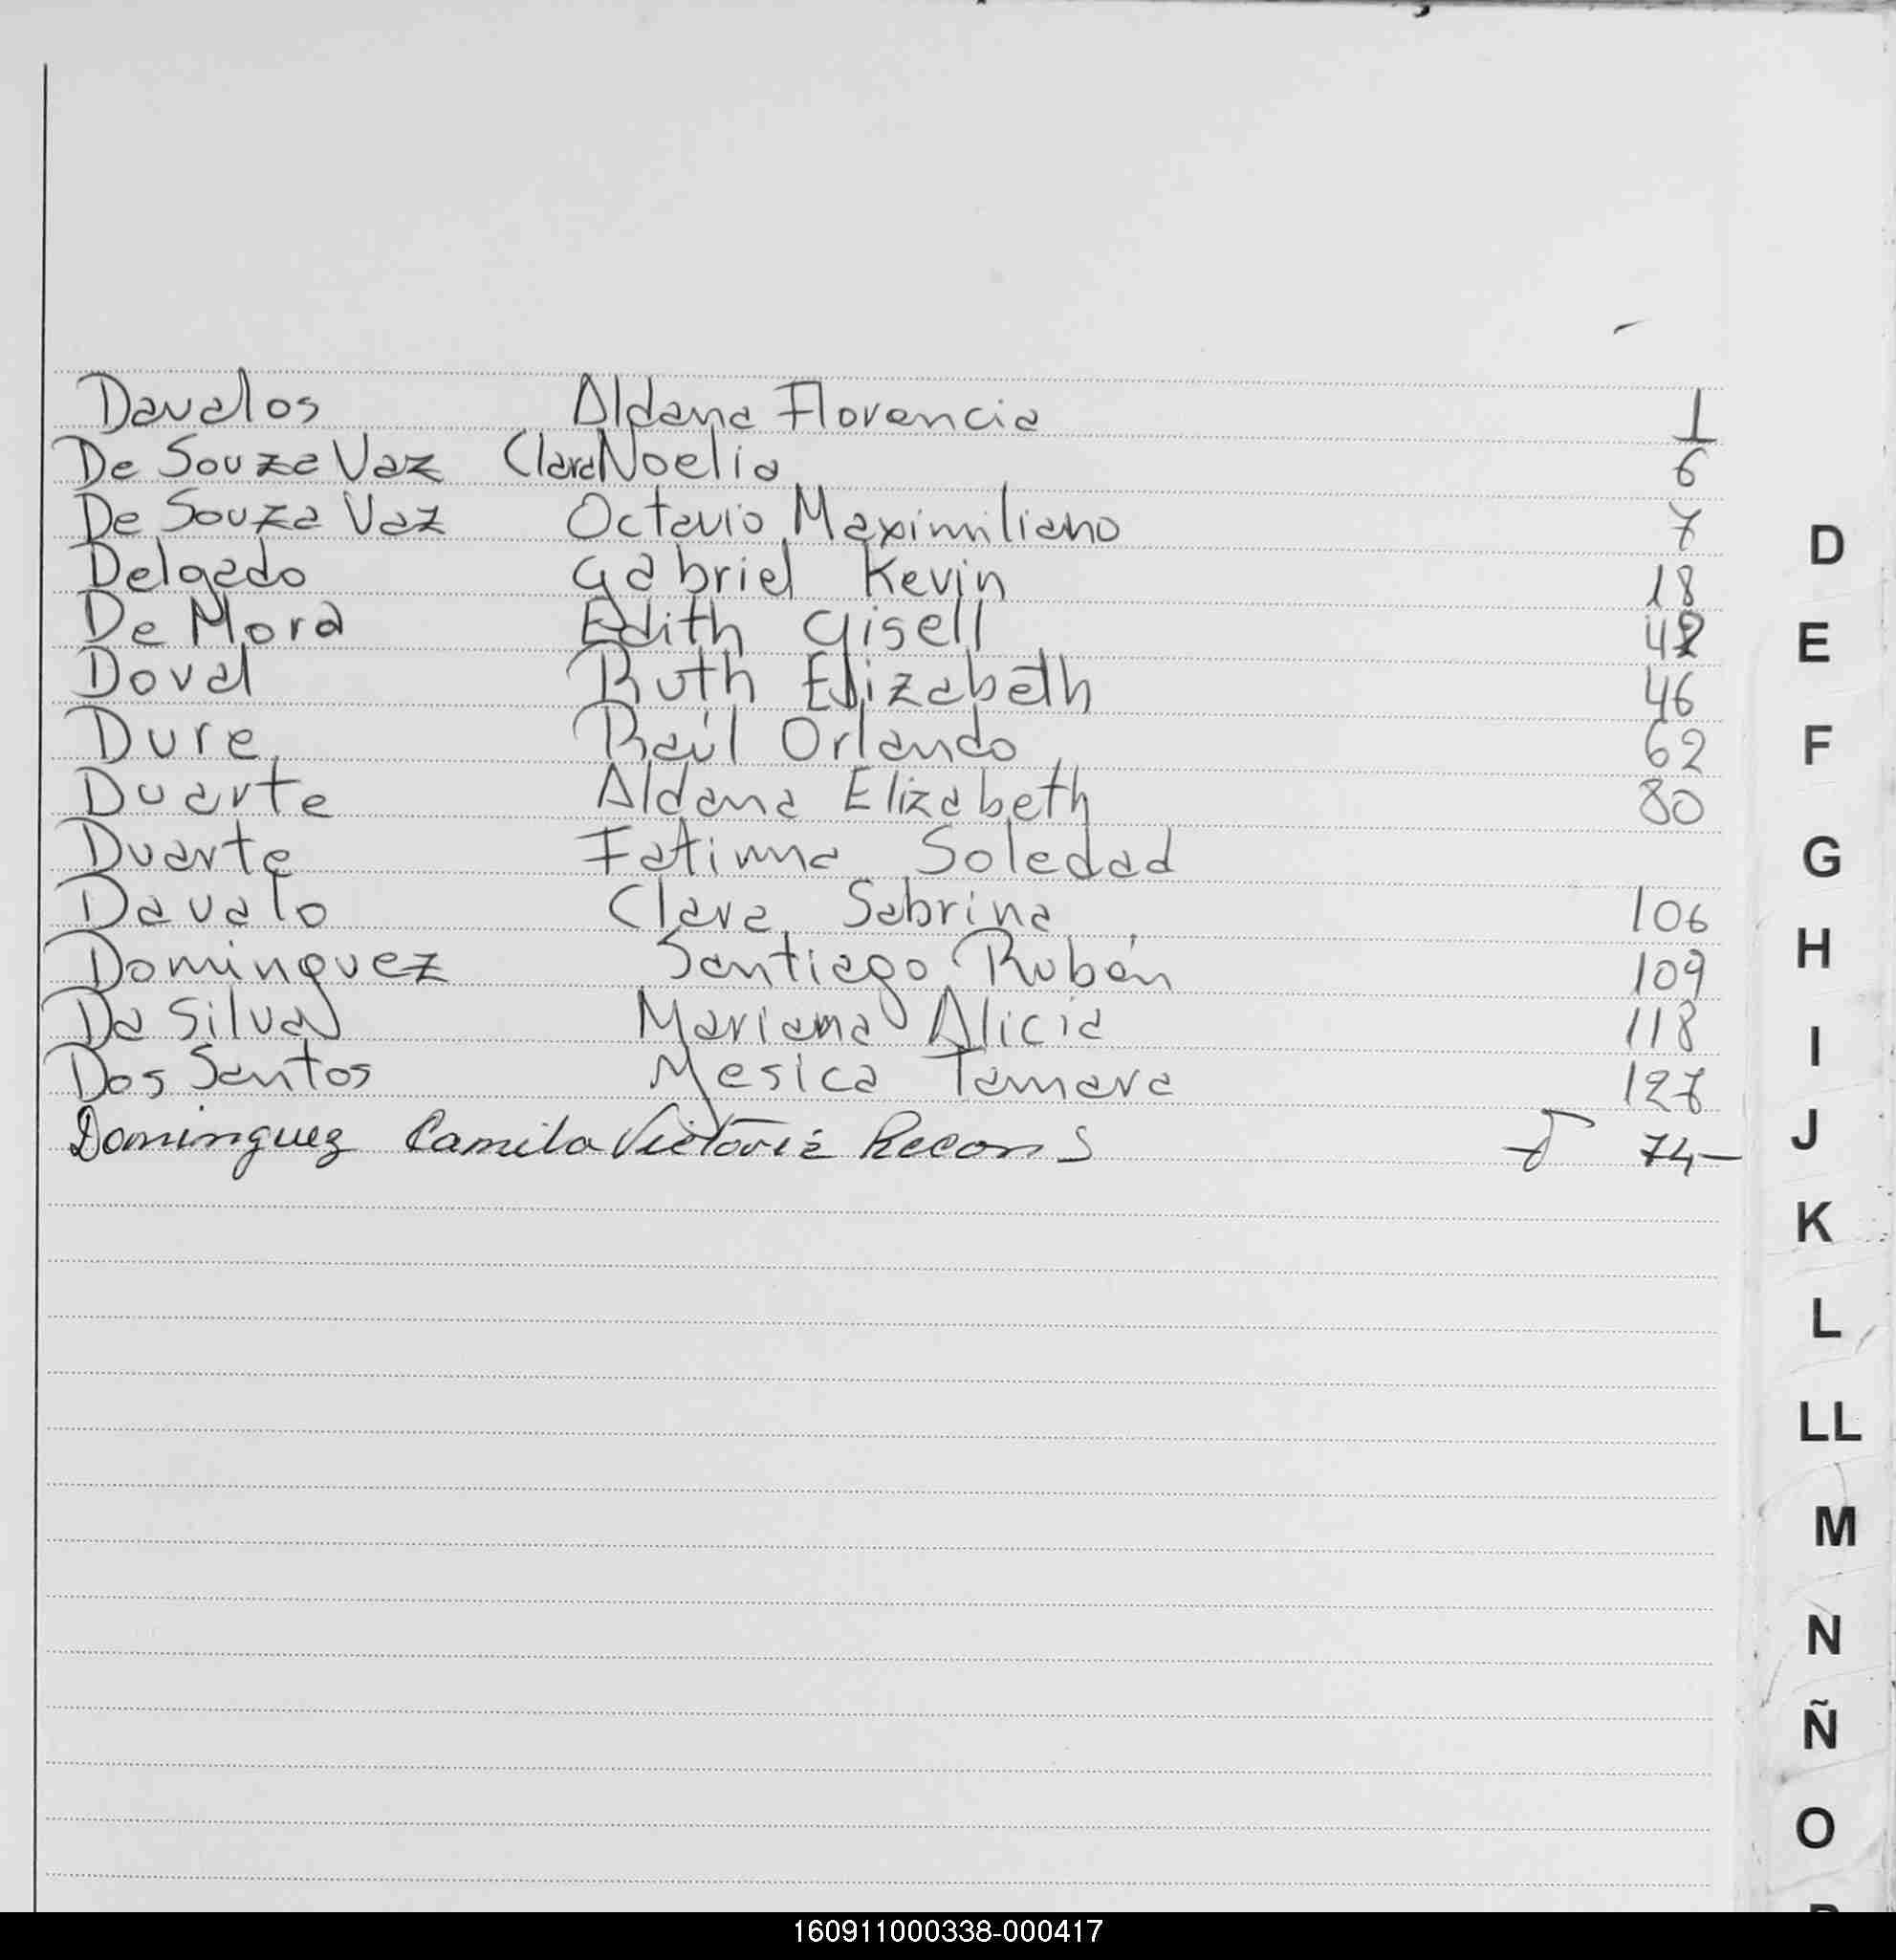 Davalos Aldana Florencia 1
De Souza Vaz Clara Noelia 6
De Souza Vaz Octavio Maximiliano 7
Delgado Gabriel Kevin 18
De Mora Edith Gisell 42
Doval Ruth Elizabeth 46
Dure Raúl Orlando 62
Duarte Aldana Elizabeth 80
Duarte Fatima Soledad
Davalo Clara Sabrina 106
Dominguez Santiago Rubén 109
Da Silva Mariana Alicia 118
Dos Santos Mesica Tamara 127
Dominguez Camila Victoria Recon S 74-
D
E
F
G
H
I
J
K
L
LL
M
N
Ñ
O
160911000338-000417